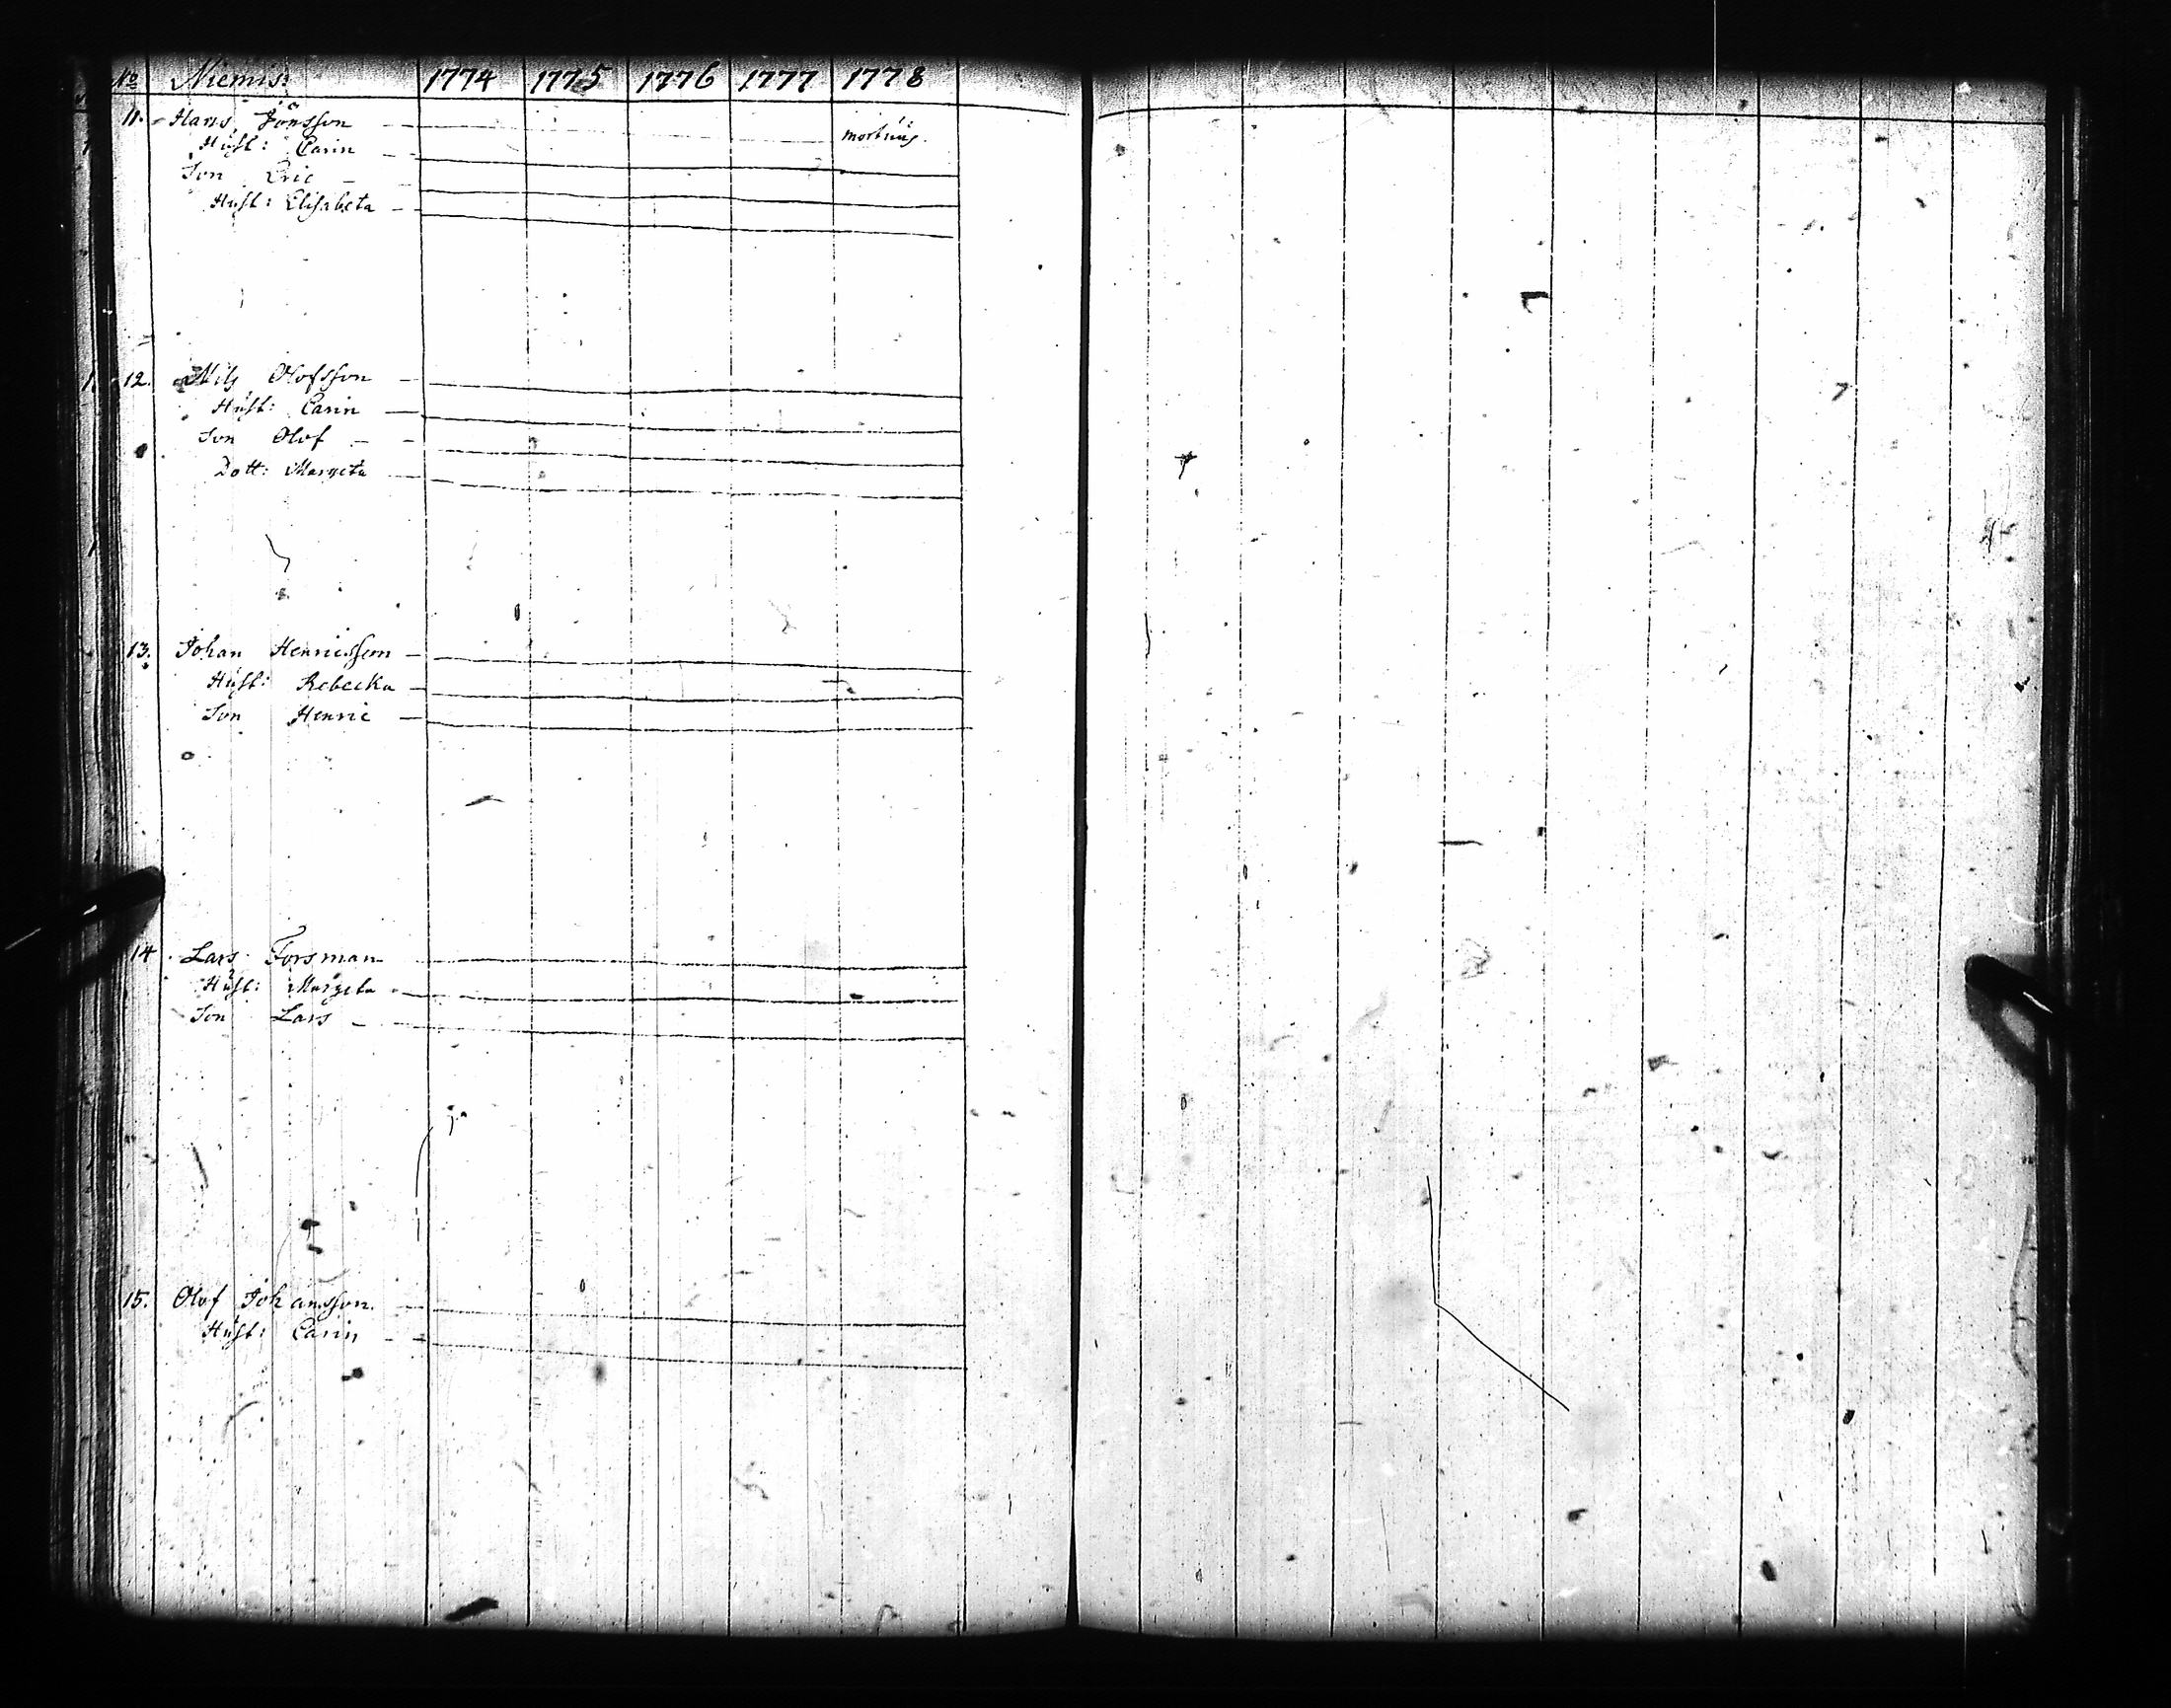 No Niemis: 1774 1775 1776 1777 1778
11. Hans Jönsson mortuus.
Hust: Carin
Son Eric
Hust: Elisabeta
12. Nils Olofsson
Hust: Carin
Son Olof
Dott: Margeta
13. Johan Henricsson
Hust: Rebecka
Son Henric
14 Lars Forsman
Hust: Margeta
Son Lars
15. Olof Johansson.
Hust: Carin